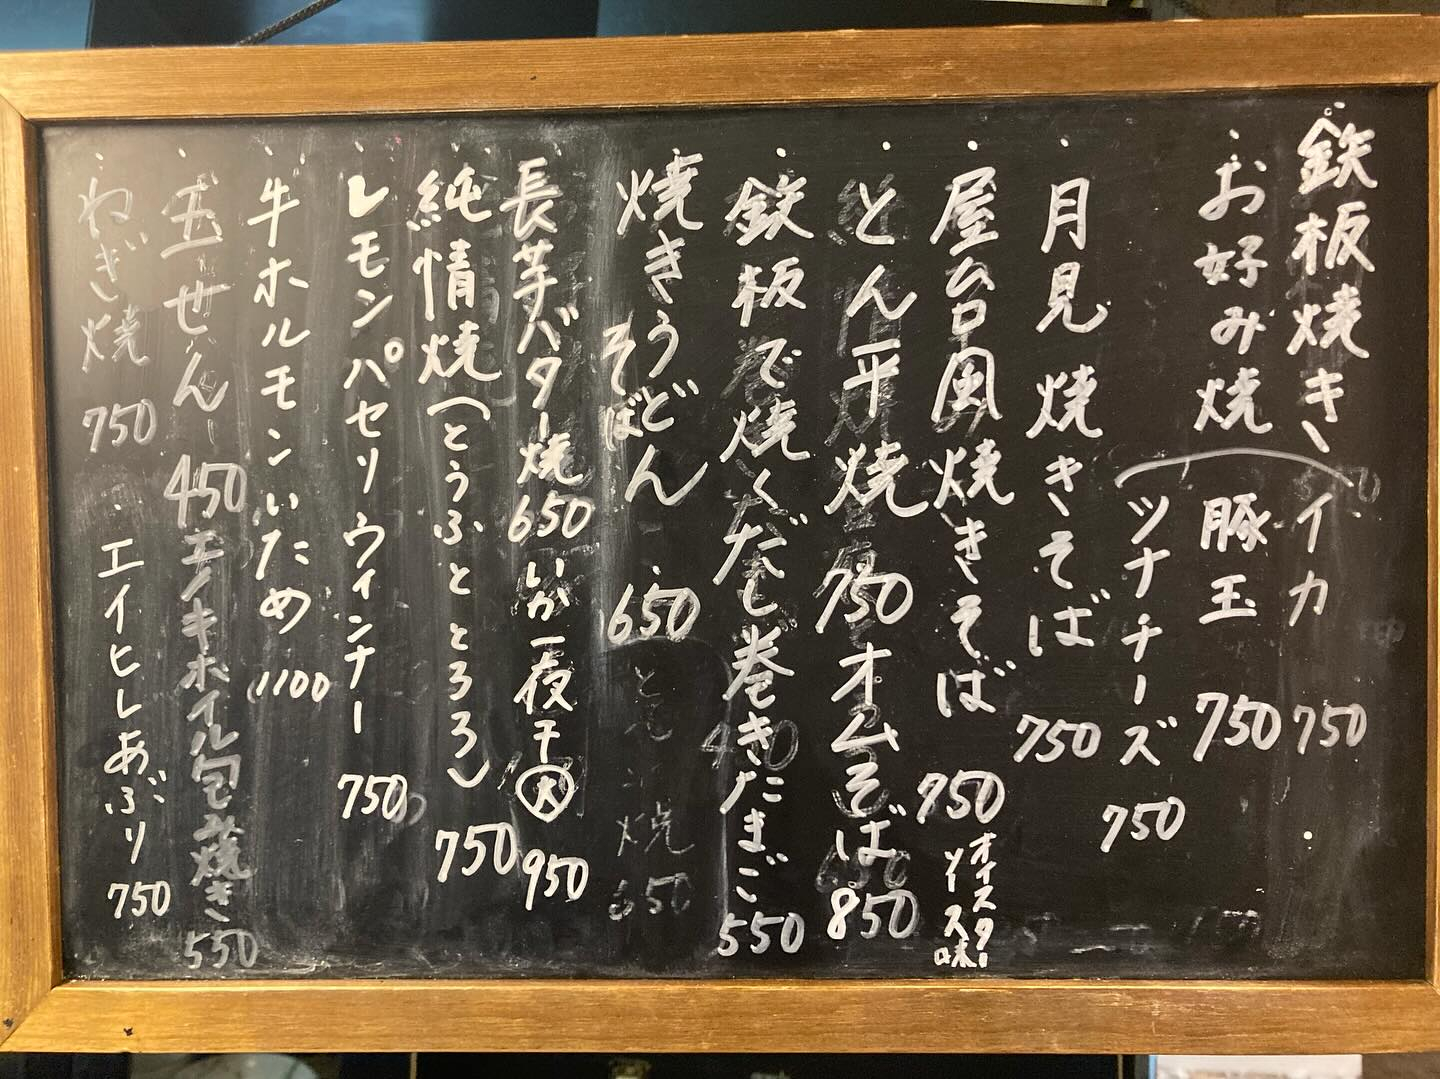 鉄板焼き
お好み焼
イカ 750
豚玉 750
ツナチーズ 750
月見焼きそば 750
屋台風焼きそば 750
オイスター
ソース味
とん平焼 750
オムそば 850
鉄板で焼くだし巻きたまご 550
焼きうどん 650
そばぼ
長芋バター焼 650
いか一夜干大 950
純情焼(とうふととろろ) 750
レモンパセリウィンナー 750
牛ホルモンいため 1100
玉せん 450
エノキホイル包み焼き 550
ねぎ焼 750
エイヒレあぶり 750